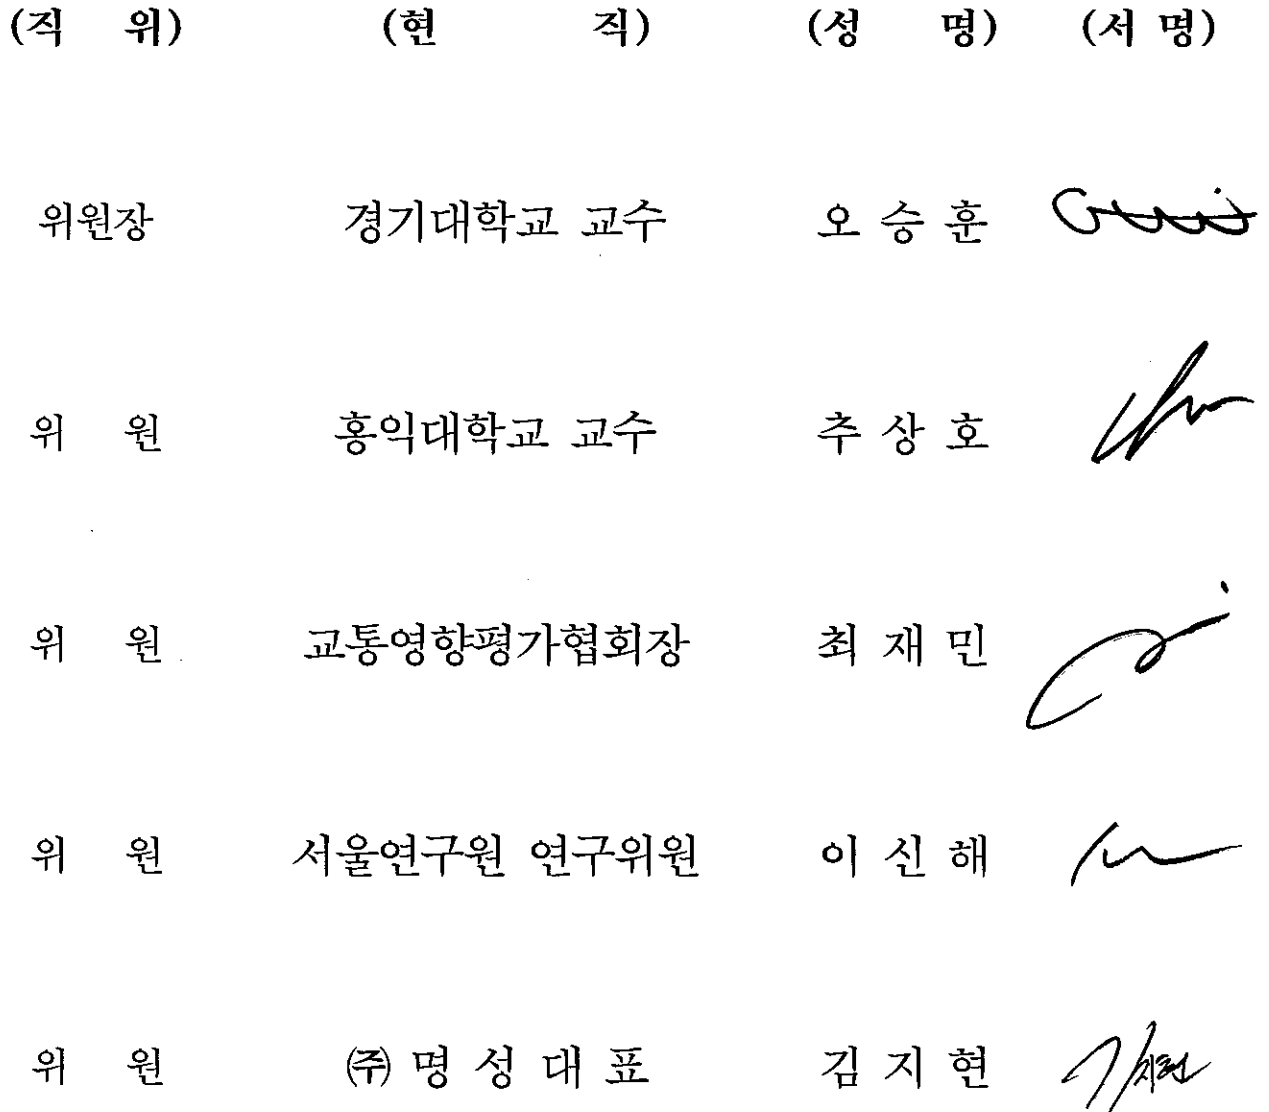 (직 위) (현 직) (성 명) (서 명)
위원장 경기대학교 교수 오 승 훈
위 원 홍익대학교 교수 추 상 호
위 원 교통영향평가협회장 최 재 민
위 원 서울연구원 연구위원 이 신 해
위 원 ㈜ 명 성 대 표 김 지 현